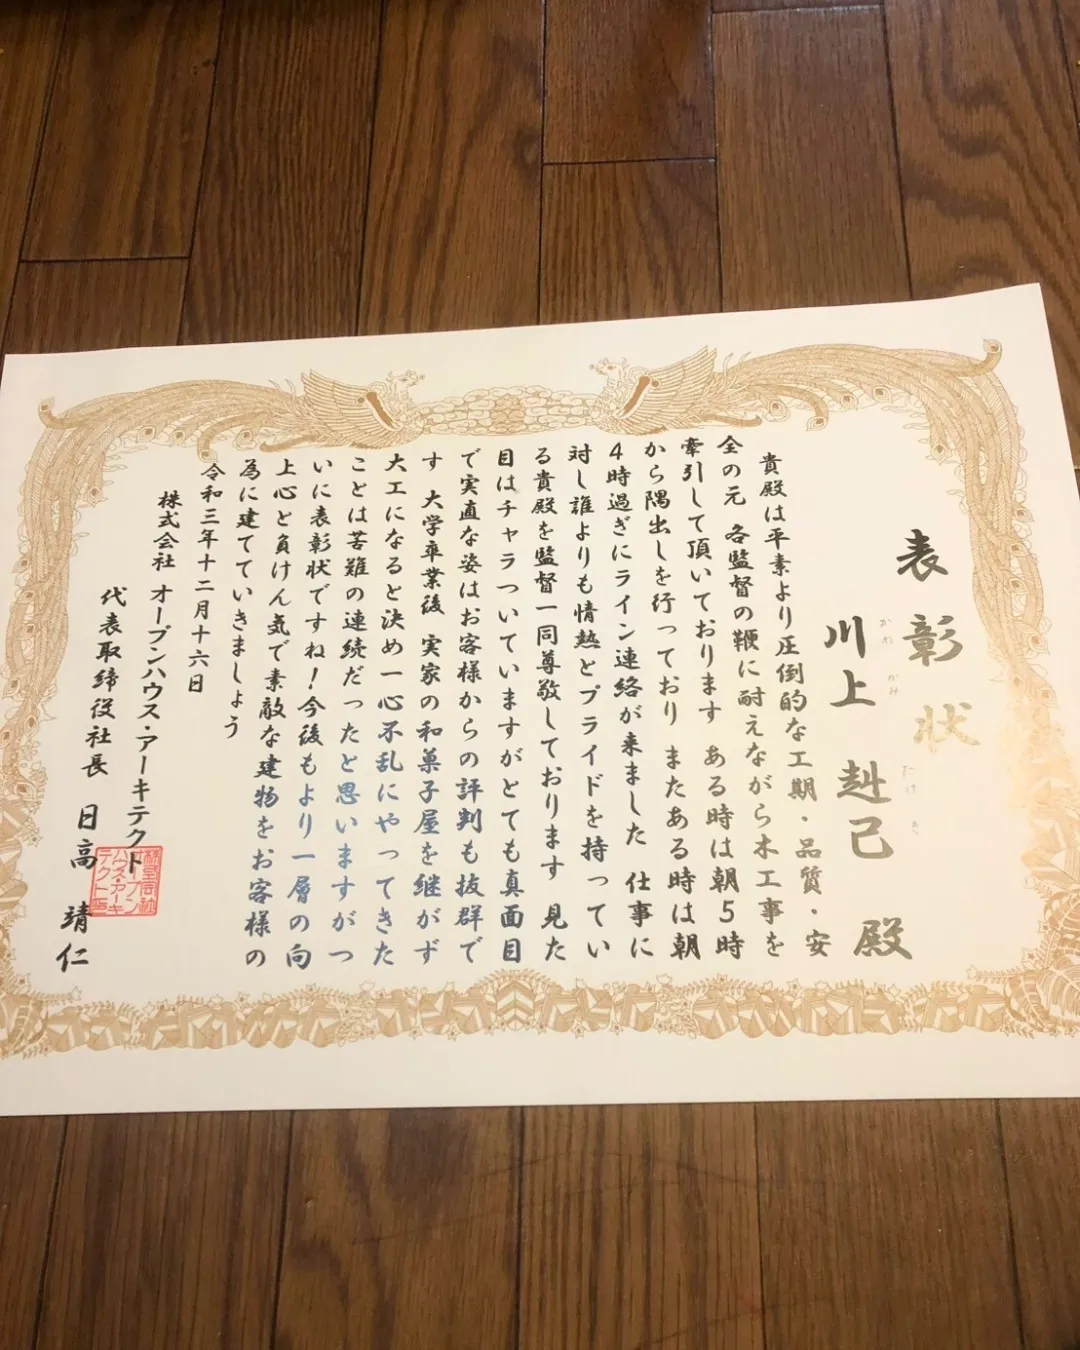 表彰状
川上 赳己 殿
かわ かみ
たけ き
貴殿は平素より圧倒的な工期・品質・安
全の元 各監督の鞭に耐えながら木工事を
牽引して頂いております ある時は朝5時
から隅出しを行っており またある時は朝
4時過ぎにライン連絡が来ました 仕事に
対し誰よりも情熱とプライドを持ってい
る貴殿を監督一同尊敬しております 見た
目はチャラついていますがとても真面目
で実直な姿はお客様からの評判も抜群で
す 大学卒業後 実家の和菓子屋を継がず
大工になると決め一心不乱にやってきた
ことは苦難の連続だったと思いますがつ
いに表彰状ですね!今後もより一層の向
上心と負けん気で素敵な建物をお客様の
為に建てていきましょう
令和三年十二月十六日
株式会社 オープンハウス・アーキテクト
代表取締役社長 日高 靖仁
株式会社
オープン
ハウス・アーキ
テクト